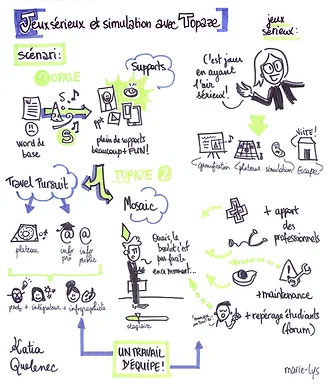 Jeux sérieux et simulation avec Topaze
jeux
sérieux:
scénari:
OPALE
Supports
C'est jouer
en ayant
l'air
sérieux!
S
ppt
word de
base
plein de supports
beaucoup + FUN!
VITE!
gamification
plateau
simulation
Escape
Travel Pursuit
TOPAZE 2
Mosaic
plateau
info
pro
info
public
Ouais, le
boulot c'est
pas facile
en ce moment...
+ apport
des
professionnels
+ maintenance
+ repérage étudiants
(forum)
stagiaire
Katia
Quelenec
UN TRAVAIL
D'ÉQUIPE!
marie-lys